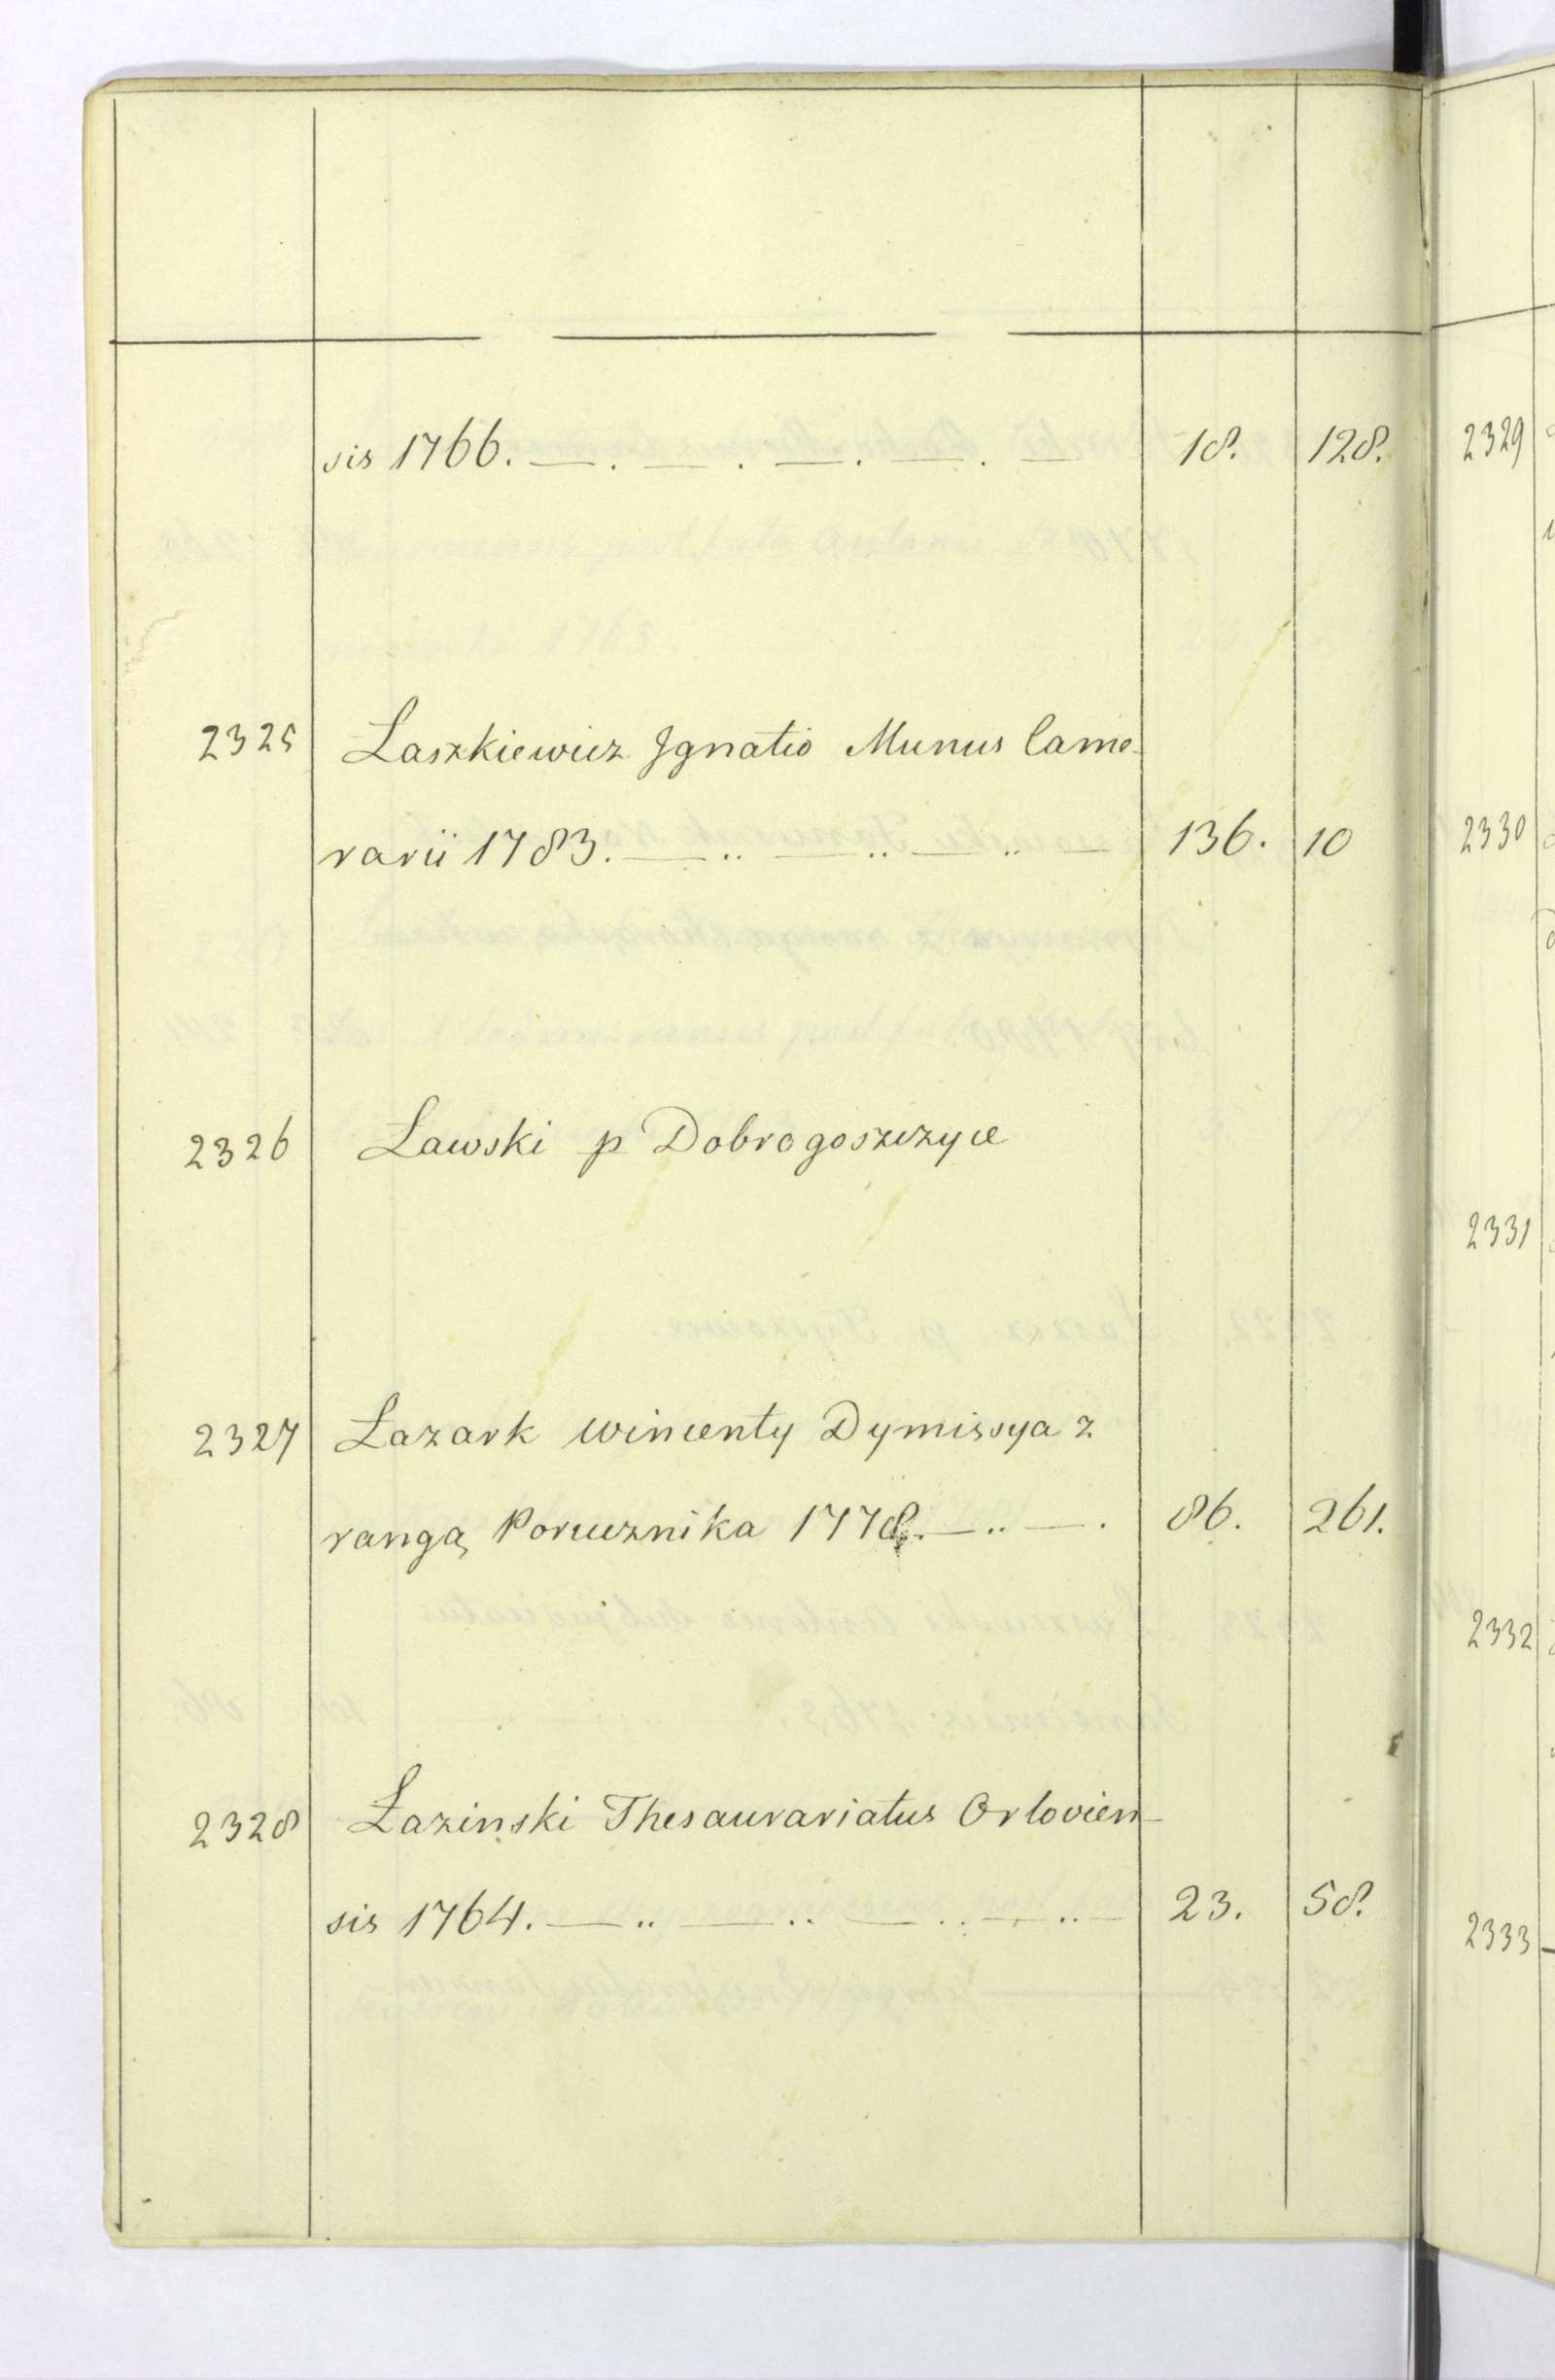 sis 1766. — . — . — . — . — 18. 128.
2325 Łaszkiewicz Ignatio Munus Came-
rarii 1783. — .. — .. — .. — 136. 10
2326 Ławski p Dobrogoszczyce
2327 Łazark Wincenty Dymissya z
rangą Porucznika 1778. — .. — . 86. 261.
2328 Łazinski Thesaurariatus Orlovien-
sis 1764. — .. — .. — .. — .. — 23. 58.
2329
2330
2331
2332
2333